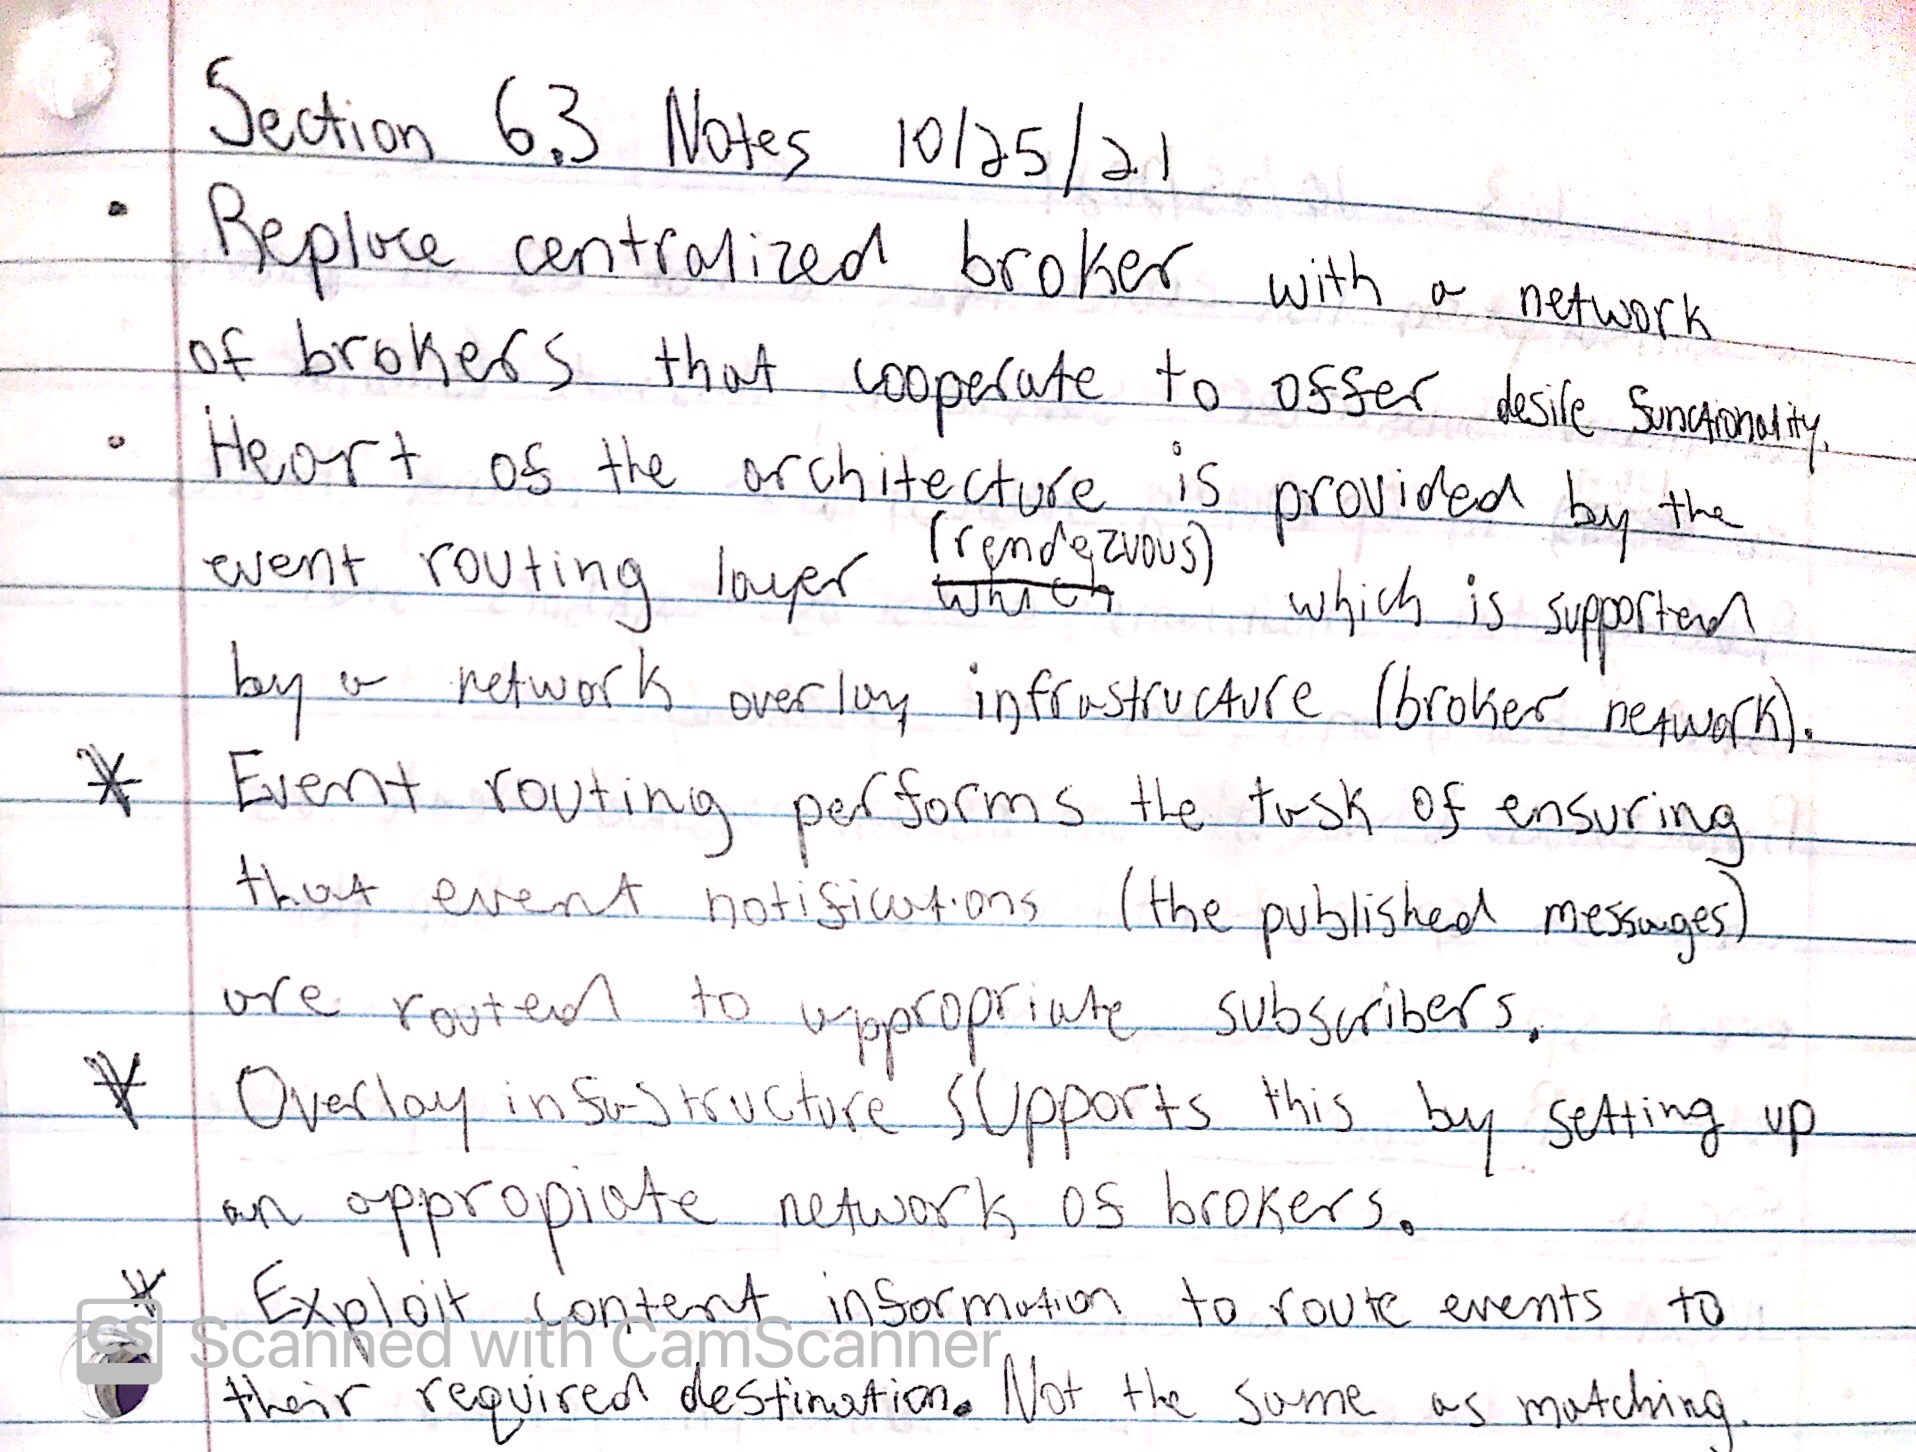 Section 6.3 Notes 10/25/21
• Replace centralized broker with a network
of brokers that cooperate to offer desire functionality.
• Heart of the architecture is provided by the
event routing layer (rendezvous) which which is supported
by a network overlay infrastructure (broker network).
* Event routing performs the task of ensuring
that event notifications (the published messages)
are routed to appropriate subscribers.
* Overlay infastructure supports this by setting up
an appropiate network of brokers.
* Exploit content information to route events to
CS Scanned with CamScanner
their required destination. Not the same as matching.